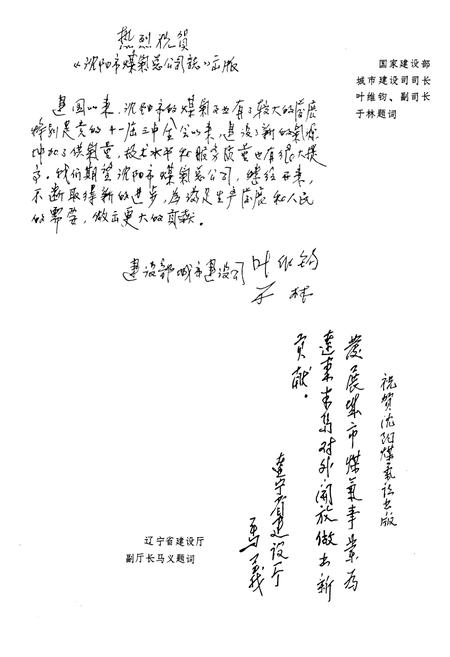 热烈祝贺
《沈阳市煤气总公司志》出版
国家建设部
城市建设司司长
叶维钧、副司长
于林题词
建国以来，沈阳市的煤气事业有了较大的发展
特别是党的十一届三中全会以来，建设了新的气源
增加了供气量，技术水平和服务质量也有很大提
高。我们期望沈阳市煤气总公司，继往开来，
不断取得新的进步，为满足生产发展和人民
的需要，做出更大的贡献。
建设部城市建设司 叶维钧
于林
祝贺沈阳煤气志出版
发展煤市煤气事业为
辽东半岛对外开放做出新
贡献。
辽宁省建设厅
马义
辽宁省建设厅
副厅长马义题词